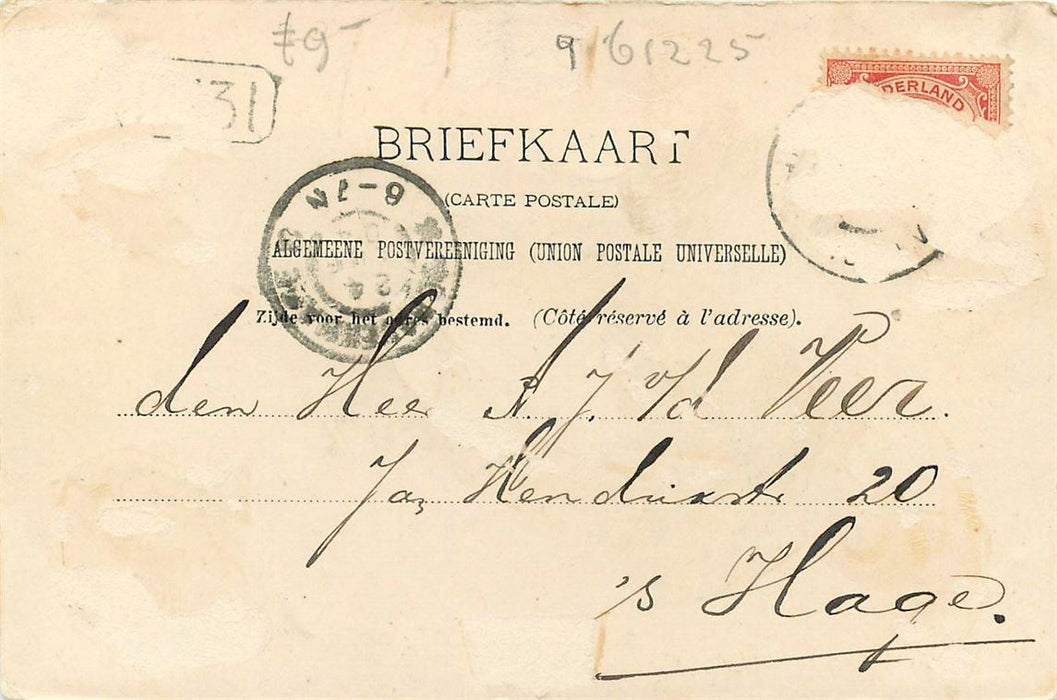 £9-
9 61225
31
DERLAND
BRIEFKAART
(CARTE POSTALE)
6-7N
ALGEMEENE POSTVEREENIGING (UNION POSTALE UNIVERSELLE)
Zijde voor het adres bestemd. (Côté réservé à l'adresse).
den Heer A. J. v/d Veer.
Jan Hendrikstr 20
's Hage.